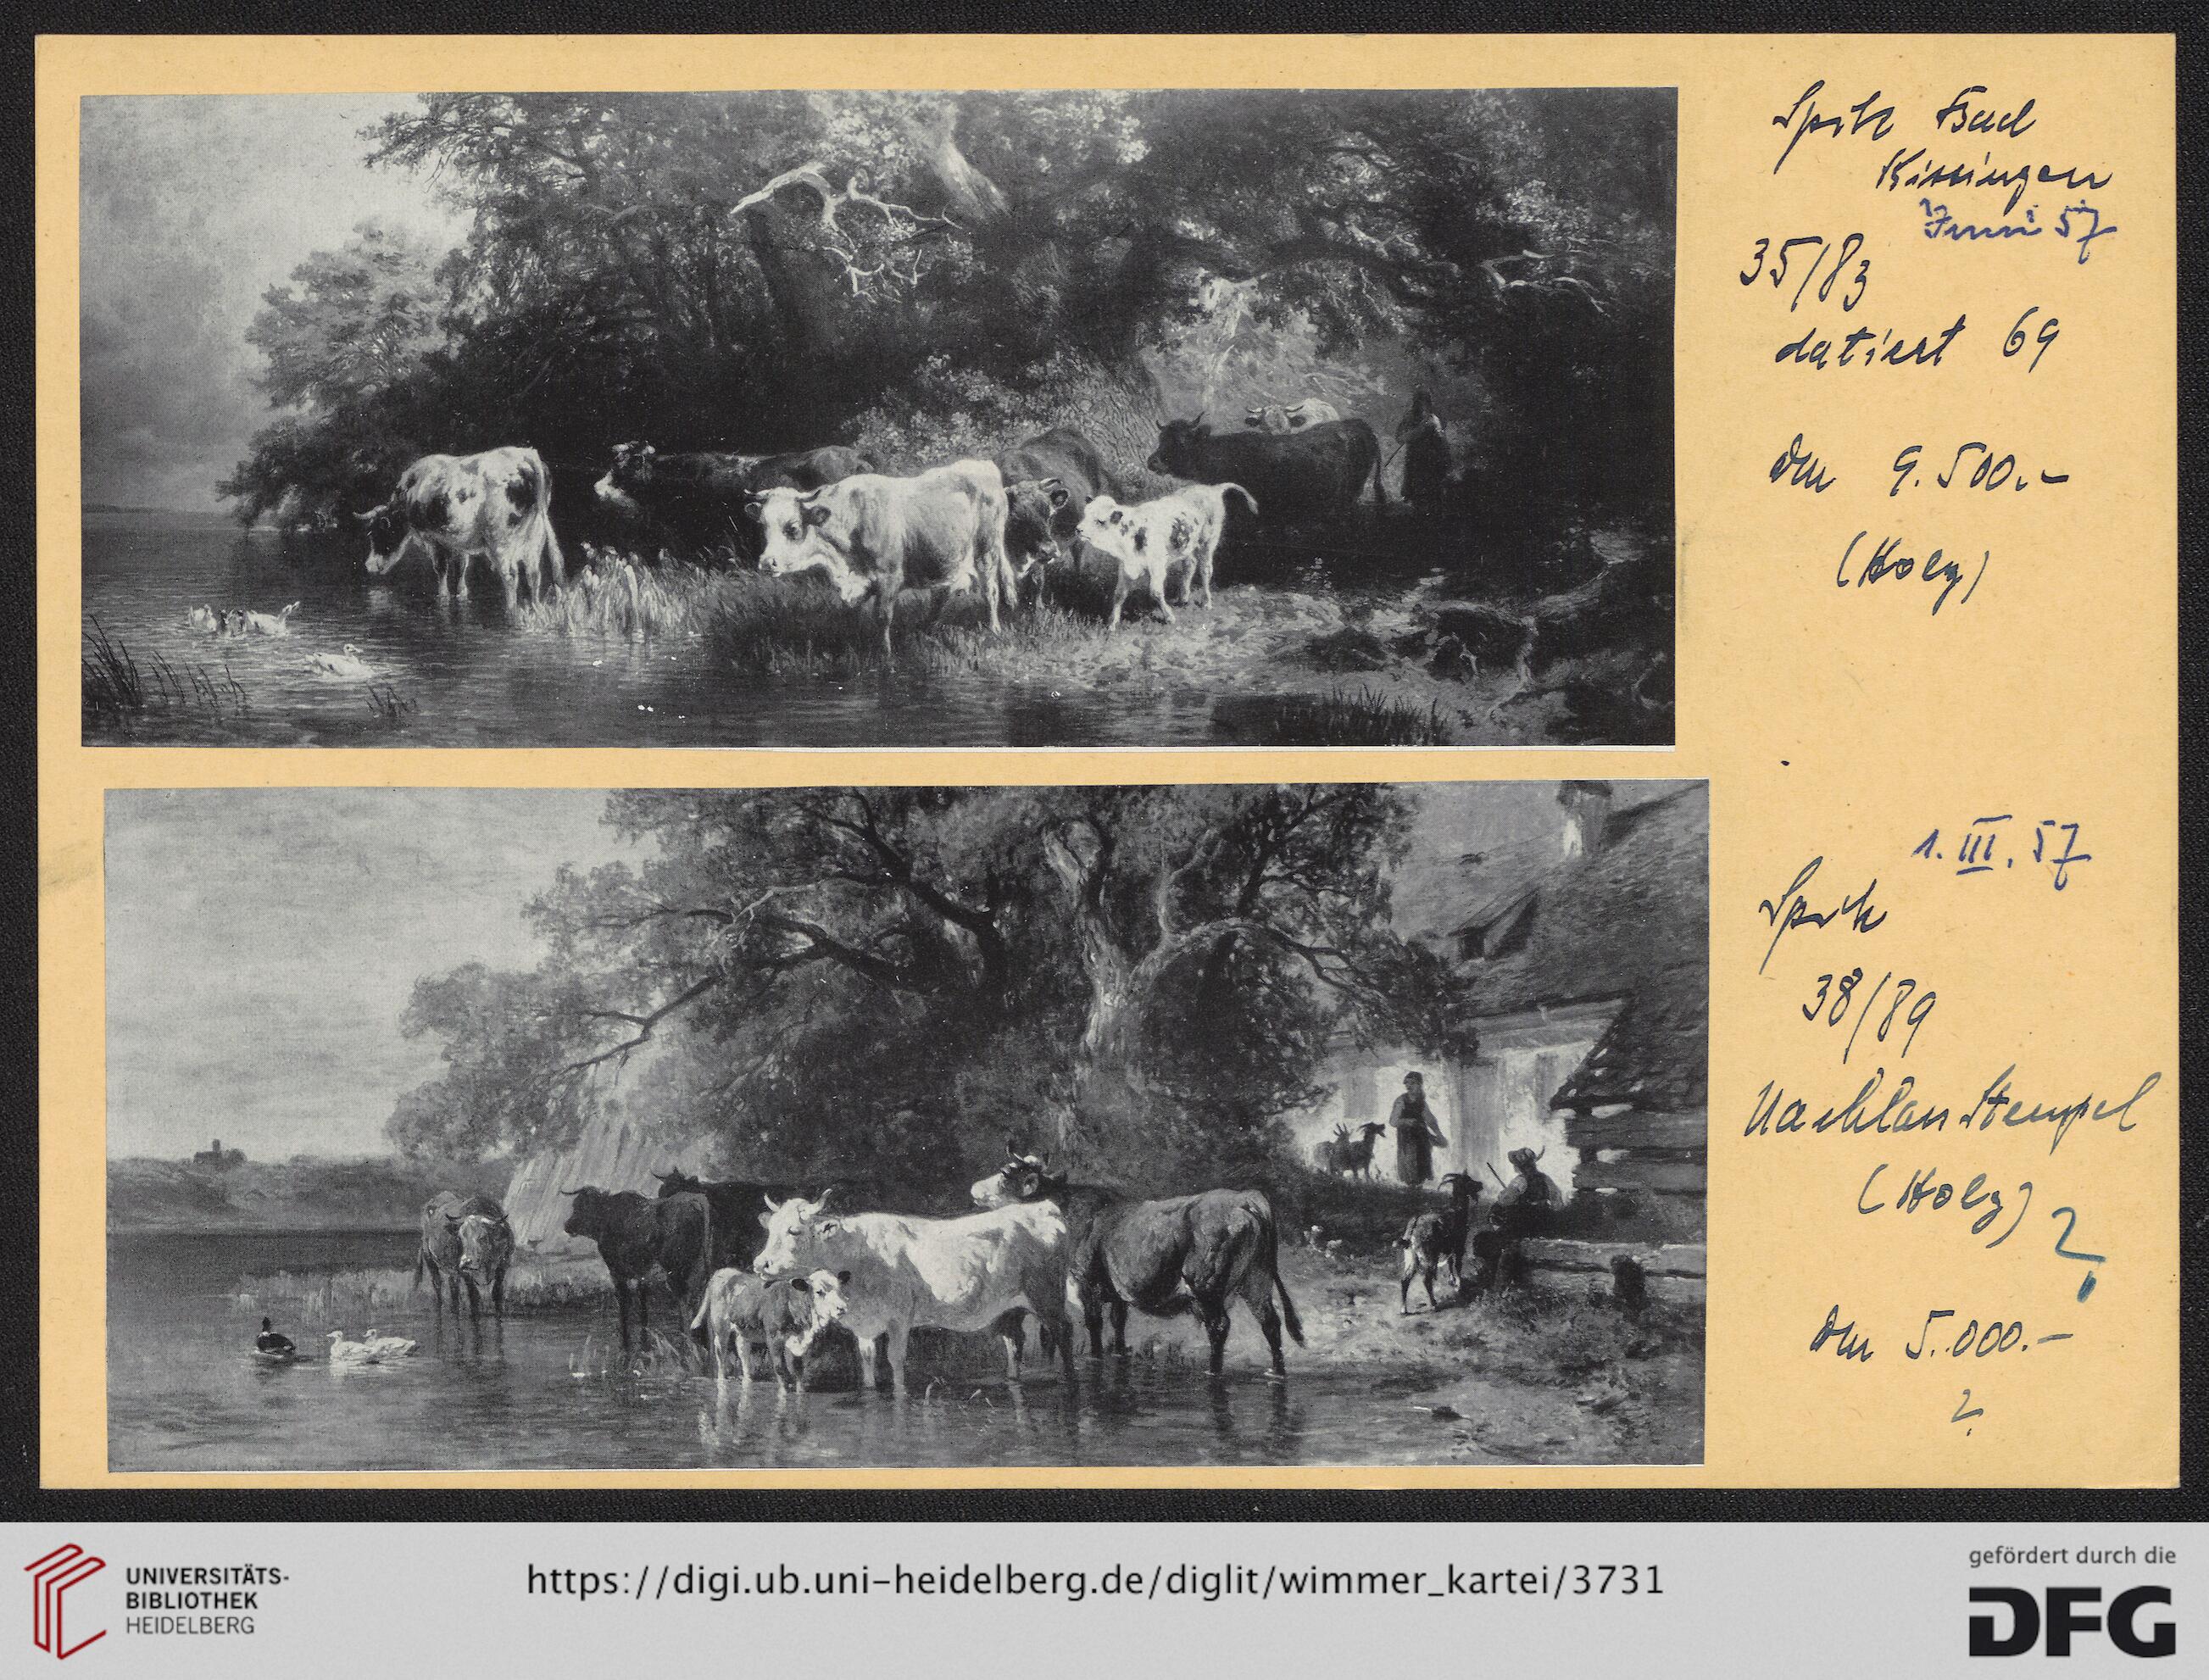 Spitz Bad
Kissingen
Juni 57
35/83
datiert 69
DM 9.500.-
(Holz)
1. III. 57
Spitz
38/89
Nachlass Stempel
(Holz) ?
DM 5.000.-
?
UNIVERSITÄTS-
BIBLIOTHEK
HEIDELBERG
https://digi.ub.uni-heidelberg.de/diglit/wimmer_kartei/3731
gefördert durch die
DFG